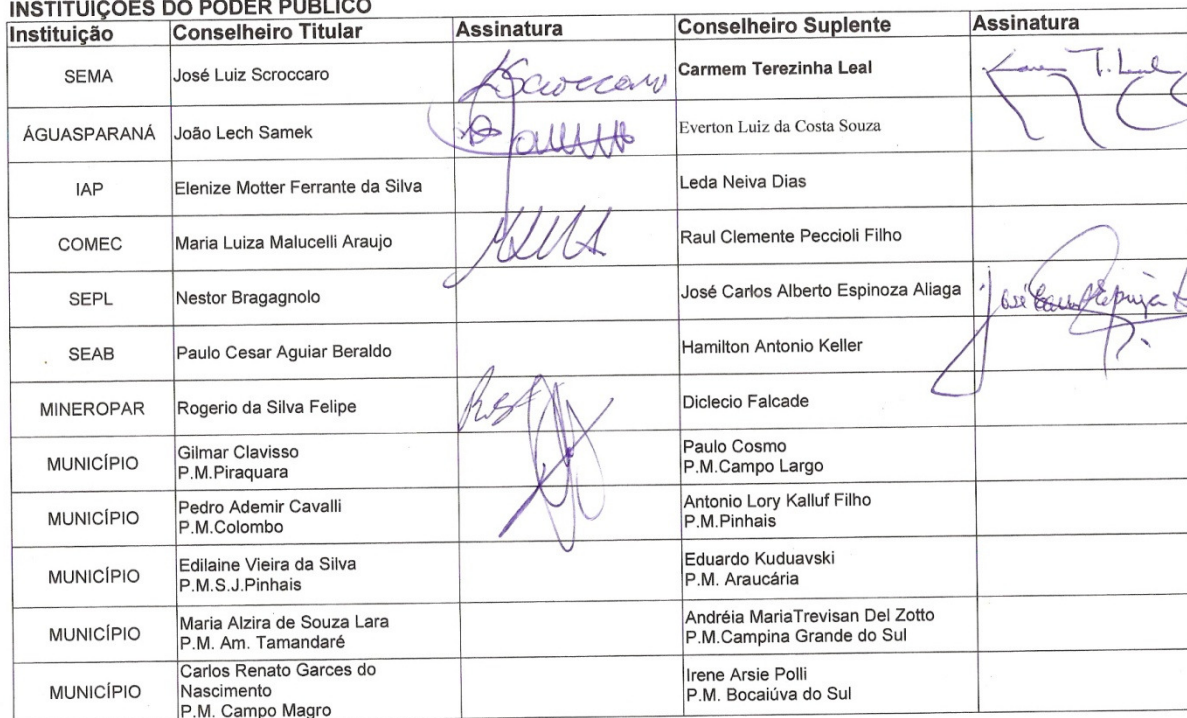 INSTITUIÇÕES DO PODER PÚBLICO
Instituição Conselheiro Titular Assinatura Conselheiro Suplente Assinatura
SEMA José Luiz Scroccaro Scroccaro Carmem Terezinha Leal T. Leal
ÁGUASPARANÁ João Lech Samek Everton Luiz da Costa Souza
IAP Elenize Motter Ferrante da Silva Leda Neiva Dias
COMEC Maria Luiza Malucelli Araujo Raul Clemente Peccioli Filho
SEPL Nestor Bragagnolo José Carlos Alberto Espinoza Aliaga José
SEAB Paulo Cesar Aguiar Beraldo Hamilton Antonio Keller
MINEROPAR Rogerio da Silva Felipe Diclecio Falcade
MUNICÍPIO Gilmar Clavisso Paulo Cosmo
P.M.Piraquara P.M.Campo Largo
MUNICÍPIO Pedro Ademir Cavalli Antonio Lory Kalluf Filho
P.M.Colombo P.M.Pinhais
MUNICÍPIO Edilaine Vieira da Silva Eduardo Kuduavski
P.M.S.J.Pinhais P.M. Araucária
MUNICÍPIO Maria Alzira de Souza Lara Andréia MariaTrevisan Del Zotto
P.M. Am. Tamandaré P.M.Campina Grande do Sul
MUNICÍPIO Carlos Renato Garces do Irene Arsie Polli
Nascimento P.M. Bocaiúva do Sul
P.M. Campo Magro